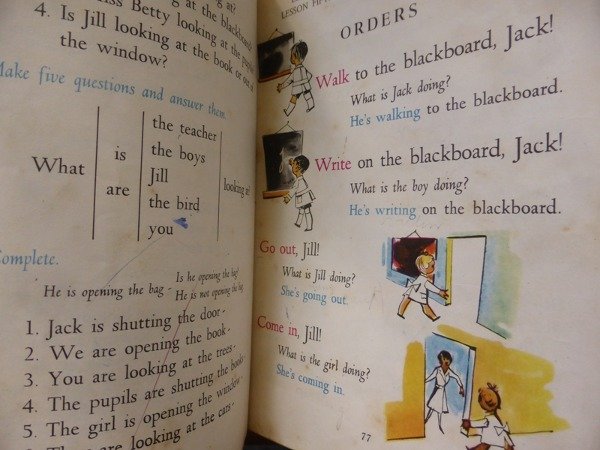 looking at the blackboard
Betty looking at the
4. Is Jill looking at the book or out of
the window?
Make five questions and answer them.
the teacher
the boys
What is Jill looking at?
are the bird
you
Complete.
He is opening the bag - Is he opening the bag?
He is not opening the bag.
1. Jack is shutting the door -
2. We are opening the book -
3. You are looking at the trees -
4. The pupils are shutting the books -
5. The girl is opening the window -
are looking at the cats -
LESSON
ORDERS
Walk to the blackboard, Jack!
What is Jack doing?
He's walking to the blackboard.
Write on the blackboard, Jack!
What is the boy doing?
He's writing on the blackboard.
Go out, Jill!
What is Jill doing?
She's going out.
Come in, Jill!
What is the girl doing?
She's coming in.
77